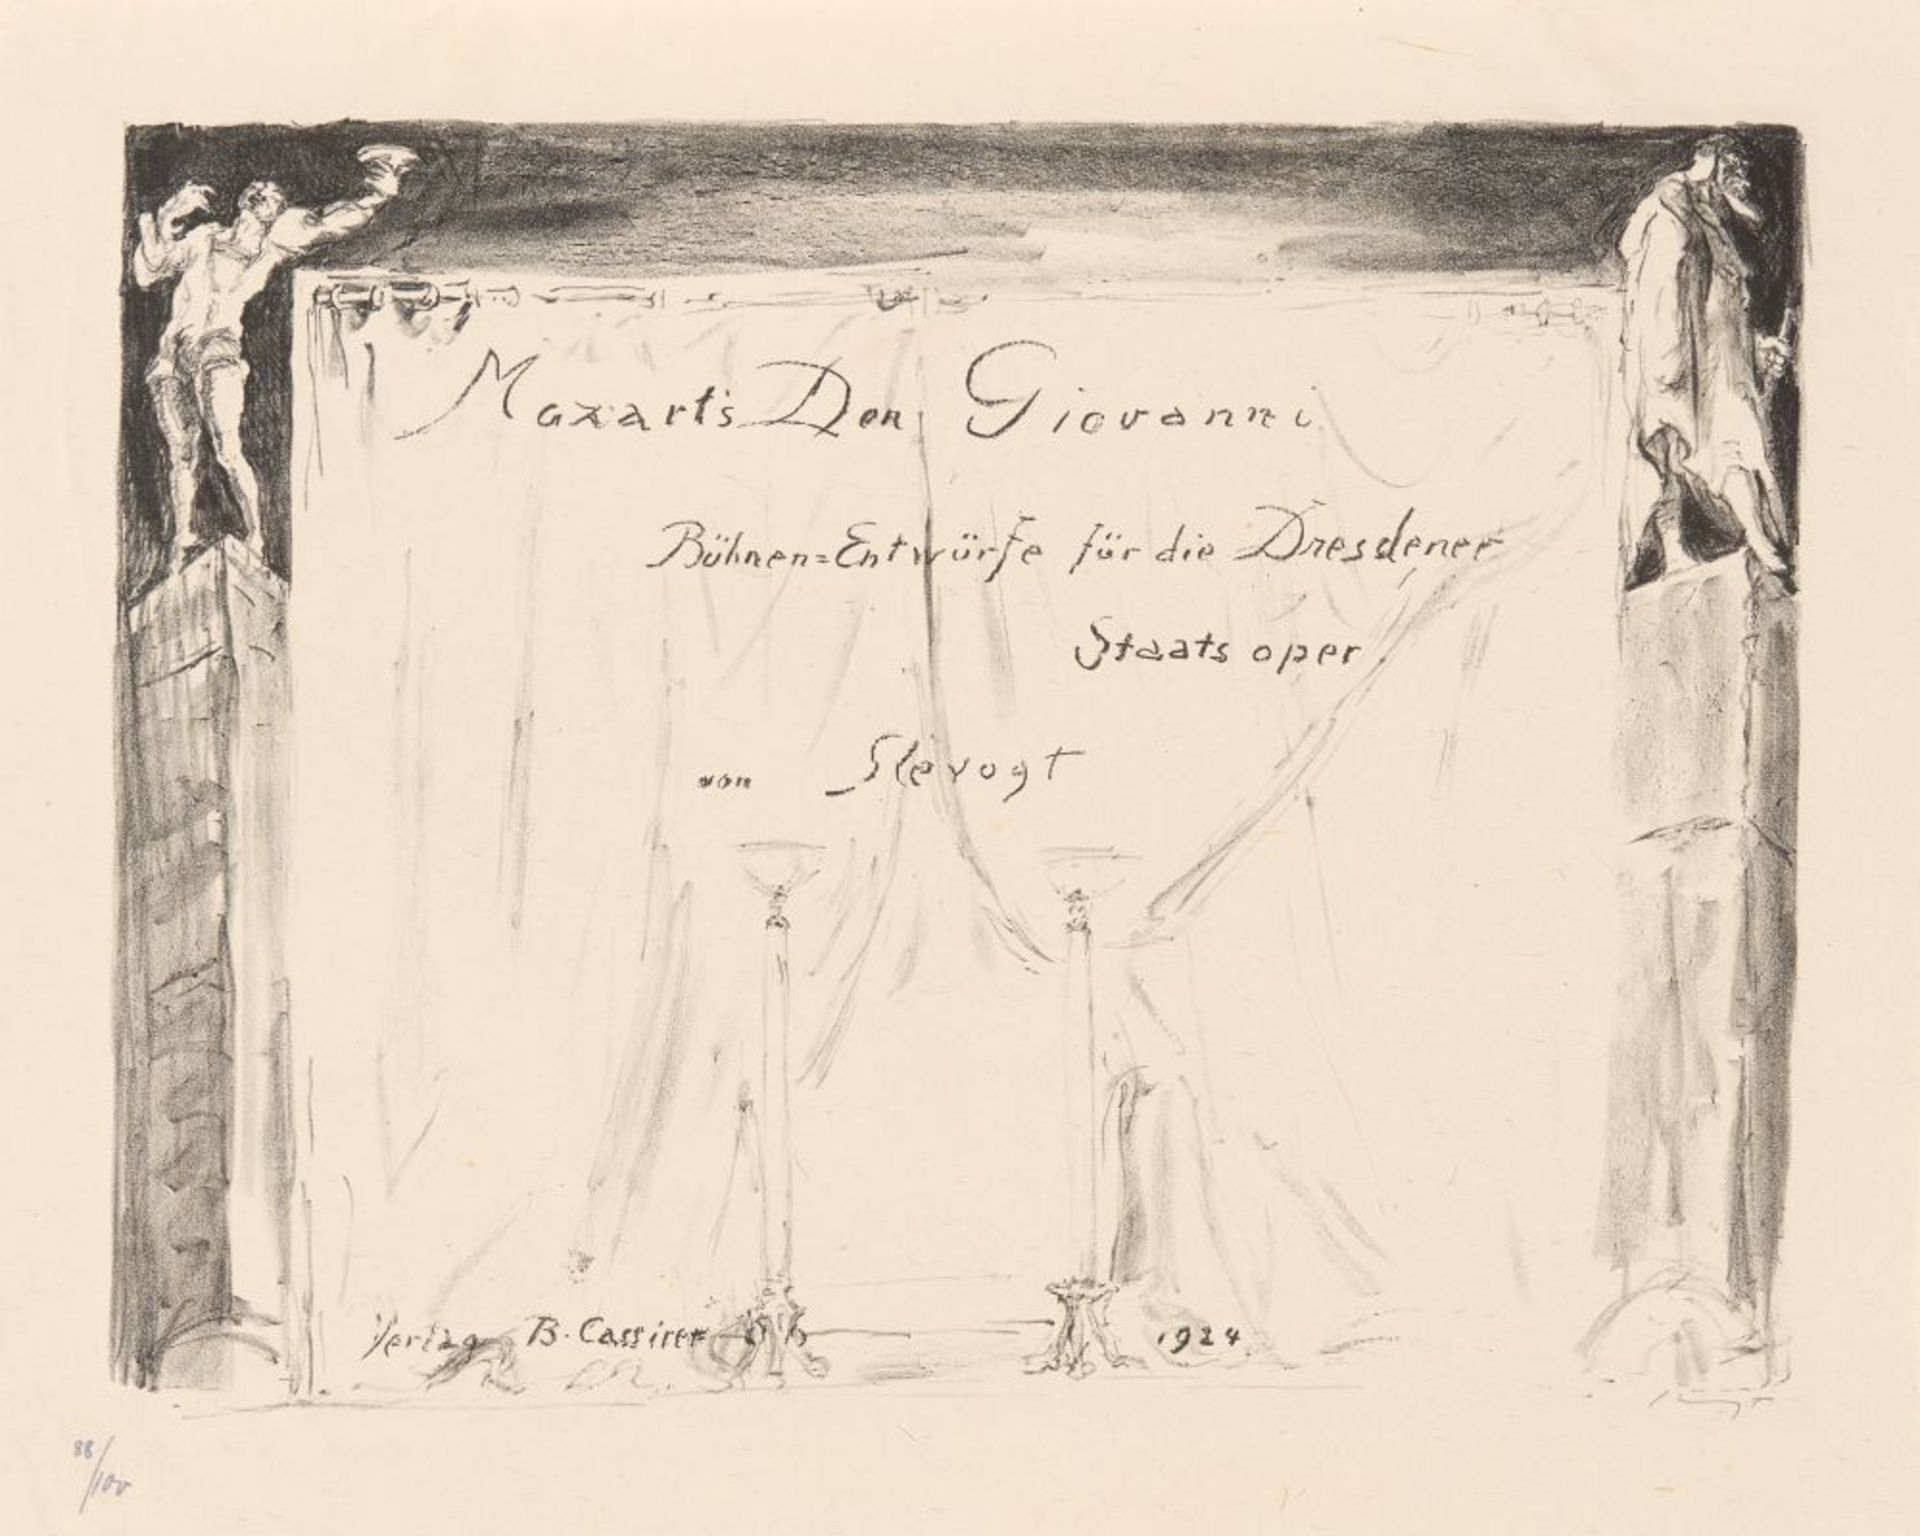 Mozart's Don Giovanni
Bühnen=Entwürfe für die Dresdener
Staatsoper
von Slevogt
Verlag B. Cassirer 1924
88/100